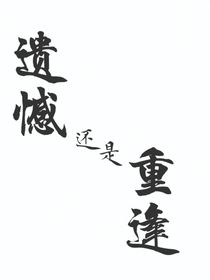 遗憾
还是
重逢